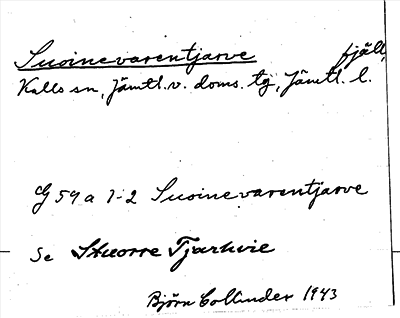 Suoinevarentjarve fjäll,
Kalls sn, Jämtl. v. doms. tg, Jämtl. l.
G 59 a 1-2 Suoinevarentjarve
Se Stuorre Tjarkvie
Björn Collinder 1943